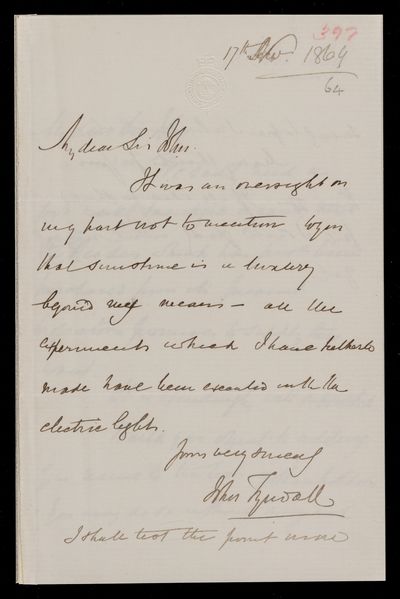 397
17th Nov. 1864
64
My dear Sir John.
It was an oversight on
my part not to mention to you
that sunshine is a luxury
beyond my means – all the
experiments which I have hitherto
made have been executed with the
electric light.
Yours very sincerely
John Tyndall
I shall test the point more